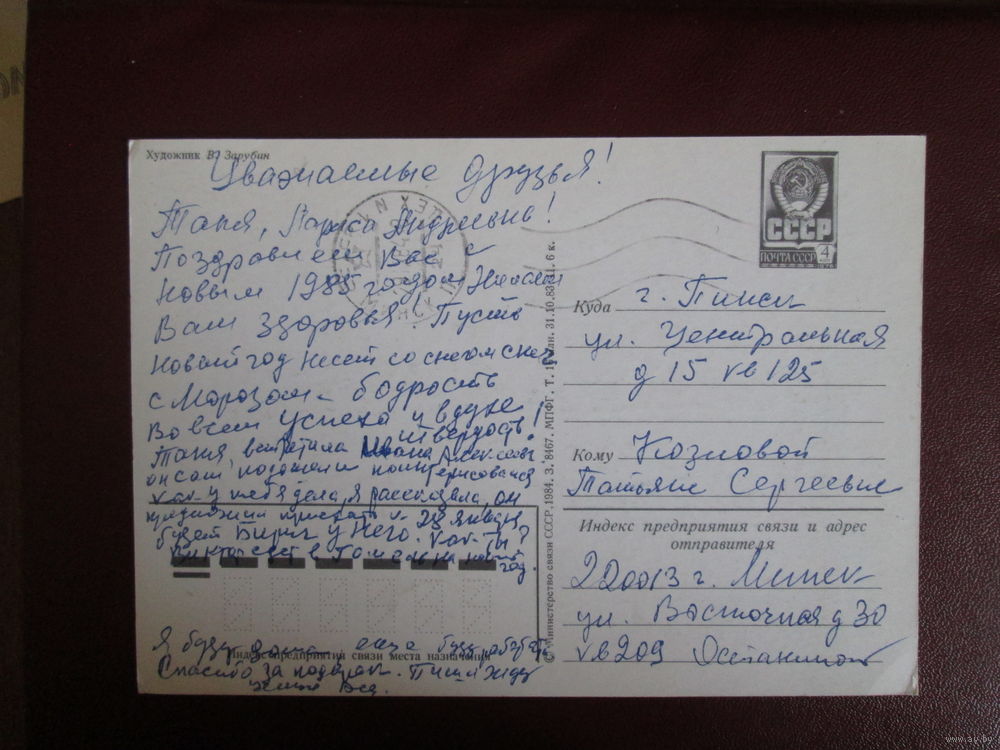 Художник В. Зарубин
Уважаемые друзья!
Таня, Лариса Андреевна!
Поздравляем Вас с
Новым 1985 годом! Желаем
Вам здоровья! Пусть
Новый год несет со снегом смех
с Морозом - бодрость
Во всем успеха и в духе
твердость!
Таня, встретила Ивана Алексеев.
он сам подошел поинтересовался
как у тебя дела, я рассказала, он
предложил приехать к 28 января
будет у него. Как ты?
едет в Гомель на новый
год.
Я буду дома еще буду
Спасибо за подарок. Пиши жду
Индекс предприятия связи места назначения
© Министерство связи СССР, 1984. З. 8467. МПФГ. Т. 31.10.83. 6 к.
СССР
ПОЧТА СССР 4
Куда г. Пинск
ул. Центральная
д 15 кв 125
Кому Козловой
Татьяне Сергеевне
Индекс предприятия связи и адрес
отправителя
220013 г. Минск
ул. Восточная д 30
кв 209
www.ay.by